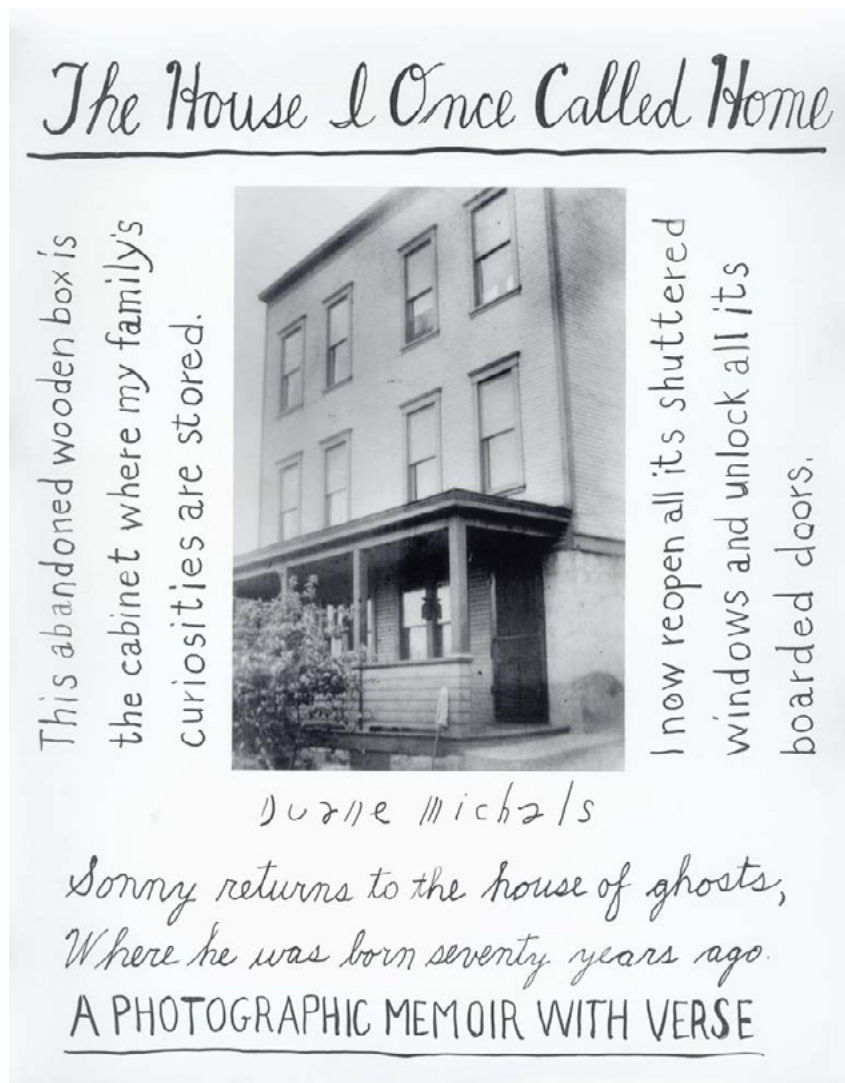 The House I Once Called Home
This abandoned wooden box is
the cabinet where my family's
curiosities are stored.
I now reopen all its shuttered
windows and unlock all its
boarded doors.
Duane Michals
Sonny returns to the house of ghosts,
Where he was born seventy years ago.
A PHOTOGRAPHIC MEMOIR WITH VERSE